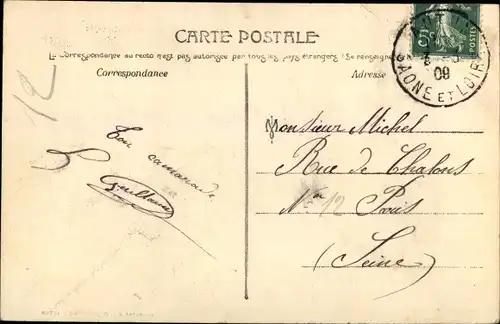 CARTE POSTALE
La Correspondance au recto n'est pas autorisée par tous les pays étrangers (Se renseigner
Correspondance
Adresse
5c
POSTES
09
SAONE ET LOIRE
12
Ton camarade
Guillaume
Monsieur Michel
Rue de Chalons
No 12 Paris
(Seine)